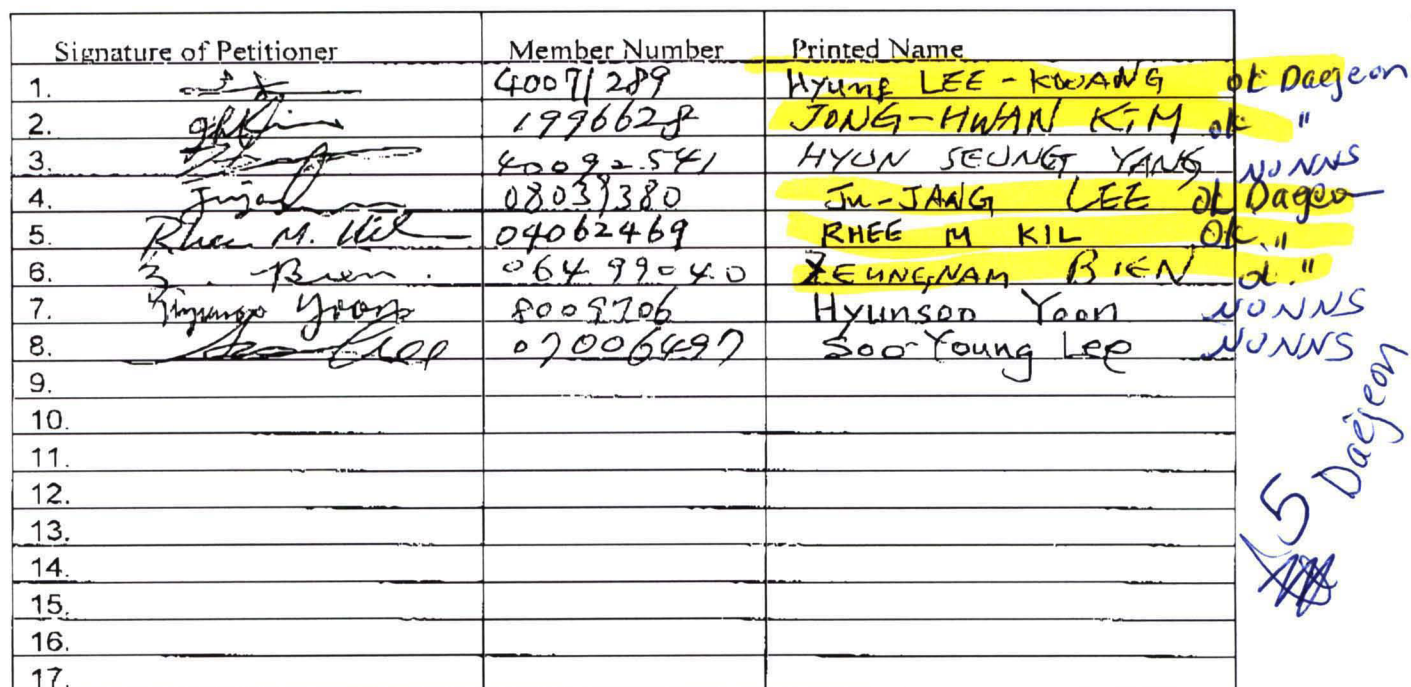 Signature of Petitioner Member Number Printed Name
1. 40071289 Hyung LEE-KWANG ok Daejeon
2. 1996628 JONG-HWAN KIM ok "
3. 40092541 HYUN SEUNG YANG NO NNS
4. 08039380 Ju-JANG LEE ok
5. Rhee M. Kil 04062469 RHEE M KIL OK "
6. Z. Bien. 06499040 ZEUNGNAM BIEN ok "
7. Hyunsoo Yoon 8009706 Hyunsoo Yoon NO NNS
8. 07006497 Soo-Young Lee NO NNS
9.
10.
11.
12.
13.
14.
15.
16.
17.
5 Daejeon